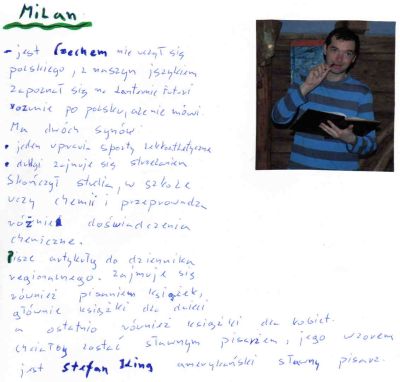 Milan
- jest Czechem nie uczył się
polskiego, z naszym językiem
zapoznał się na
rozumie po polsku, ale nie mówi.
Ma dwóch synów
• jeden uprawia sporty lekkoatletyczne
• drugi zajmuje się strzelaniem.
Skończył studia, w szkole
uczy chemii i przeprowadza
różne doświadczenia
chemiczne.
Pisze artykuły do dziennika
regionalnego. Zajmuje się
również pisaniem książek,
głównie książki dla dzieci
a ostatnio również książki dla kobiet.
chciałby zostać sławnym pisarzem, jego wzorem
jest Stefan King amerykański sławny pisarz.